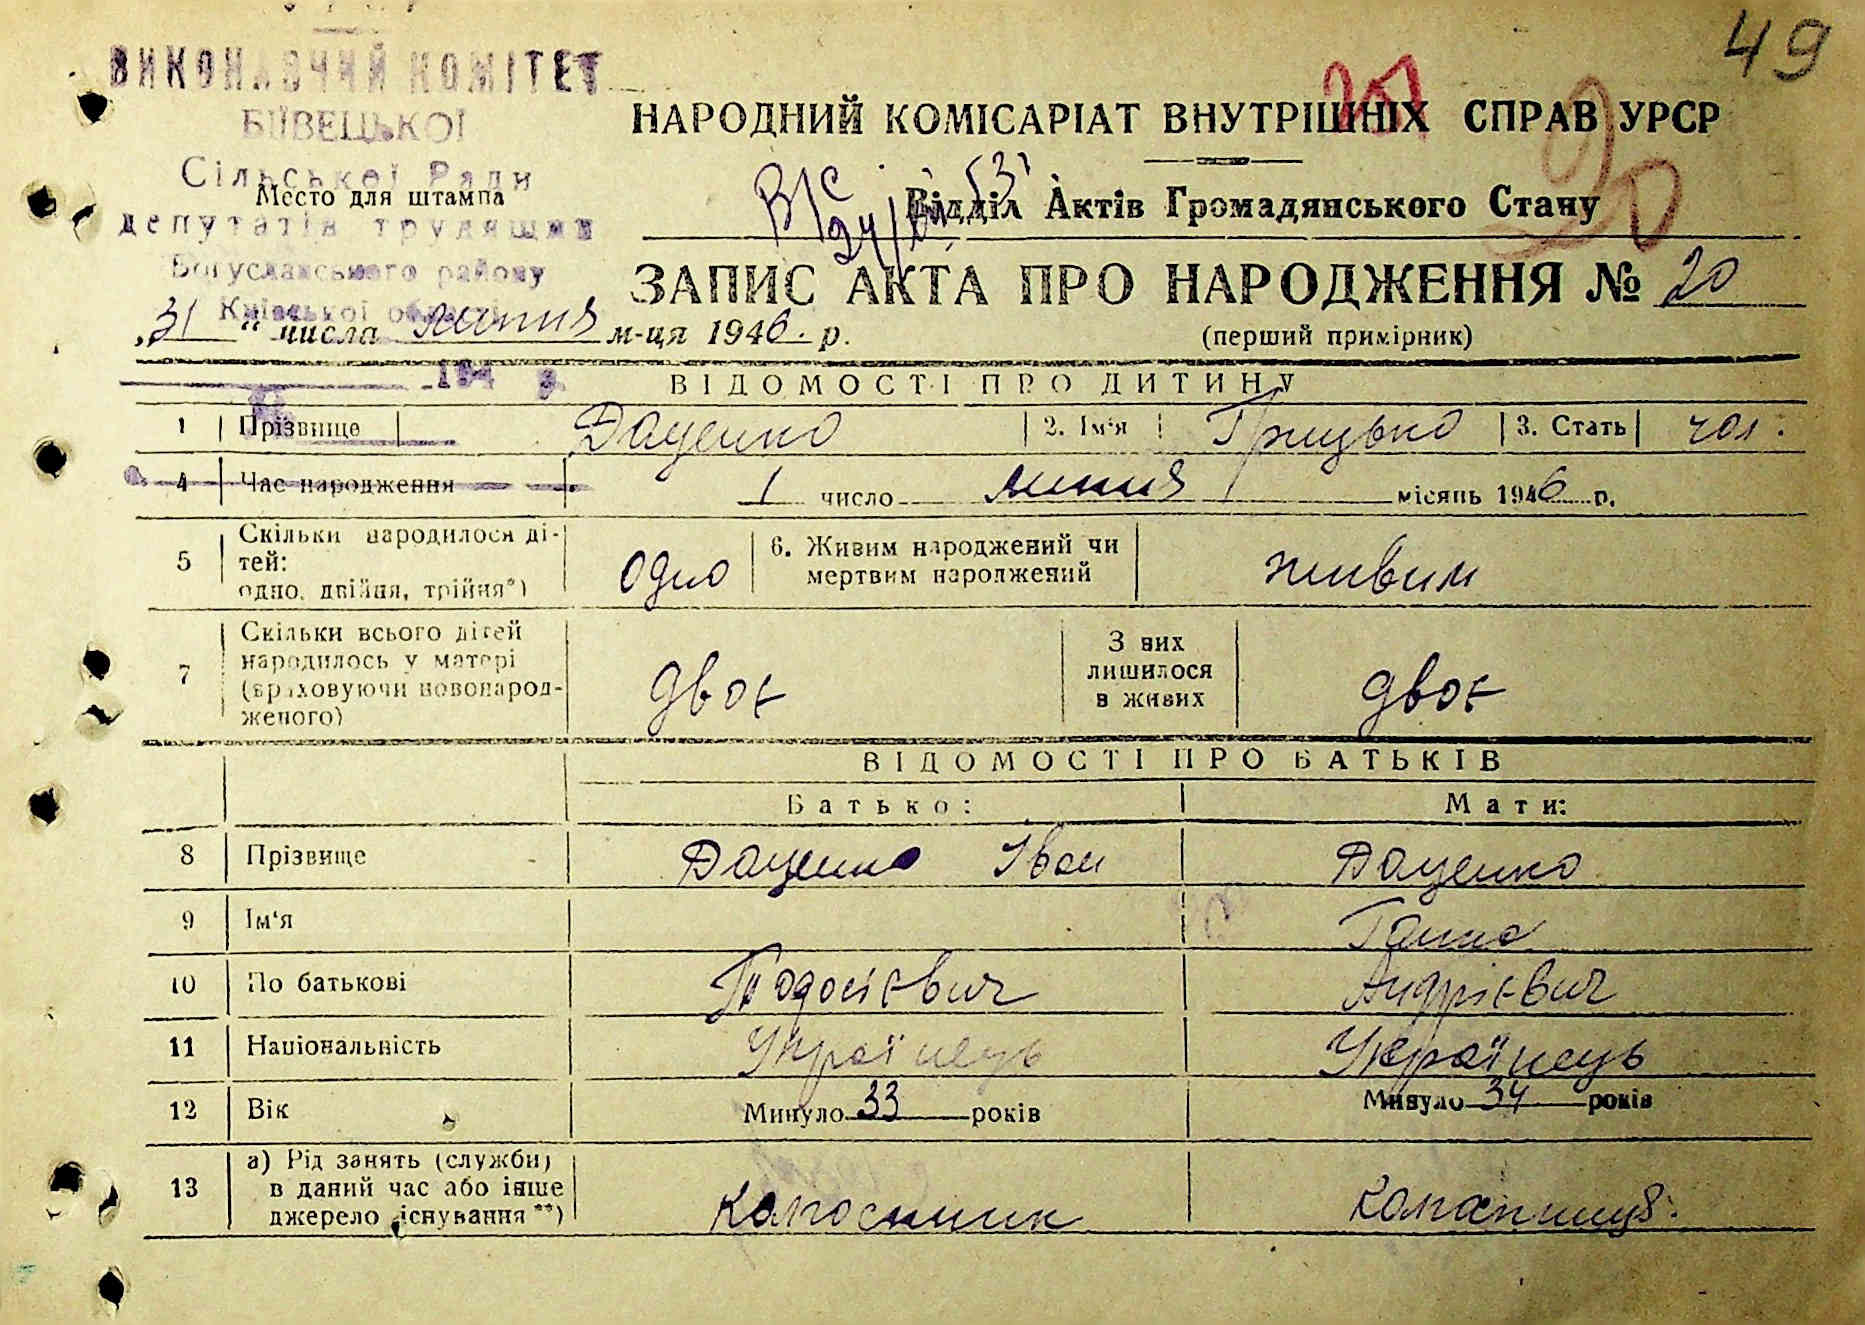 49
ВИКОНАВЧИЙ КОМІТЕТ
БІЇВЕЦЬКОЇ
Сільської Ради
депутатів трудящих
Богуславського району
Київської області
194 р.
Место для штампа
НАРОДНИЙ КОМІСАРІАТ ВНУТРІШНІХ СПРАВ УРСР
Відділ Актів Громадянського Стану
ЗАПИС АКТА ПРО НАРОДЖЕННЯ № 20
„31“ числа липня м-ця 1946. р.
(перший примірник)
ВІДОМОСТІ ПРО ДИТИНУ
1 Прізвище Даценко 2. Ім'я Грицько 3. Стать чол.
4 Час народження 1 число липня місяць 1946 р.
5 Скільки народилося ді-
тей:
одно, двійня, трійня*)
одно
6. Живим народжений чи
мертвим народжений
живим
7 Скільки всього дітей
народилось у матері
(враховуючи новонарод-
женого)
двоє
З них
лишилося
в живих
двоє
ВІДОМОСТІ ПРО БАТЬКІВ
Батько: Мати:
8 Прізвище Даценко Іван Даценко
9 Ім'я Ганна
10 По батькові Тодосієвич Андрієвич
11 Національність Українець Українець
12 Вік Минуло 33 років Минуло 34 років
13 а) Рід занять (служби)
в даний час або інше
джерело існування**)